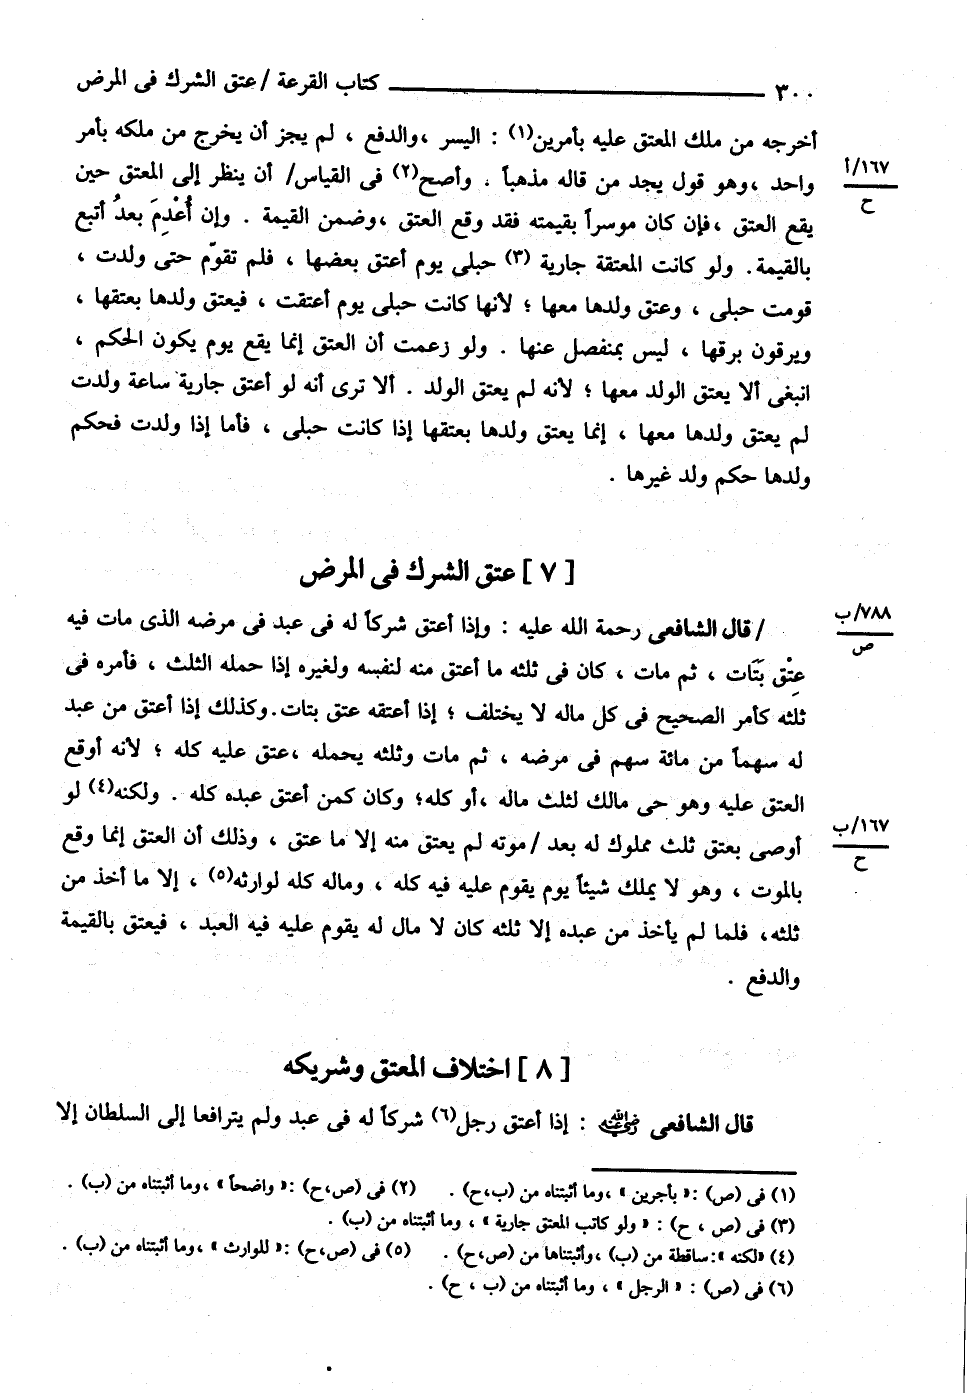 ٣٠٠ ــــــــــــــــــــ كتاب القرعة / عتق الشرك فى المرض
أخرجه من ملك المعتق عليه بأمرين(١) : اليسر ،والدفع ، لم يجز أن يخرج من ملكه بأمر
واحد ،وهو قول يجد من قاله مذهباً . وأصح(٢) فى القياس/ أن ينظر إلى المعتق حين
١٦٧/أ
ح
يقع العتق ،فإن كان موسراً بقيمته فقد وقع العتق ،وضمن القيمة . وإن أُعْدِمَ بعدُ أتبع
بالقيمة. ولو كانت المعتقة جارية (٣) حبلى يوم أعتق بعضها ، فلم تقوّم حتى ولدت ،
قومت حبلى ، وعتق ولدها معها ؛ لأنها كانت حبلى يوم أعتقت ، فيعتق ولدها بعتقها ،
ويرقون برقها ، ليس بمنفصل عنها . ولو زعمت أن العتق إنما يقع يوم يكون الحكم ،
انبغى ألا يعتق الولد معها ؛ لأنه لم يعتق الولد . ألا ترى أنه لو أعتق جارية ساعة ولدت
لم يعتق ولدها معها ، إنما يعتق ولدها بعتقها إذا كانت حبلى ، فأما إذا ولدت فحكم
ولدها حكم ولد غيرها .
[ ٧ ] عتق الشرك فى المرض
/ قال الشافعى رحمة الله عليه : وإذا أعتق شركاً له فى عبد فى مرضه الذى مات فيه
٧٨٨/ب
ص
عِتْق بَتَات ، ثم مات ، كان فى ثلثه ما أعتق منه لنفسه ولغيره إذا حمله الثلث ، فأمره فى
ثلثه كأمر الصحيح فى كل ماله لا يختلف ؛ إذا أعتقه عتق بتات.وكذلك إذا أعتق من عبد
له سهماً من مائة سهم فى مرضه ، ثم مات وثلثه يحمله ،عتق عليه كله ؛ لأنه أوقع
العتق عليه وهو حى مالك لثلث ماله ،أو كله؛ وكان كمن أعتق عبده كله . ولكنه(٤) لو
أوصى بعتق ثلث مملوك له بعد /موته لم يعتق منه إلا ما عتق ، وذلك أن العتق إنما وقع
١٦٧/ب
ح
بالموت ، وهو لا يملك شيئاً يوم يقوم عليه فيه كله ، وماله كله لوارثه(٥) ، إلا ما أخذ من
ثلثه، فلما لم يأخذ من عبده إلا ثلثه كان لا مال له يقوم عليه فيه العبد ، فيعتق بالقيمة
والدفع .
[ ٨ ] اختلاف المعتق وشريكه
قال الشافعى رضي الله عنه : إذا أعتق رجل(٦) شركاً له فى عبد ولم يترافعا إلى السلطان إلا
(١) فى (ص) :« بأجرين » ،وما أثبتناه من (ب،ح) . (٢) فى (ص،ح) :« واضحاً » ،وما أثبتناه من (ب) .
(٣) فى (ص ، ح) : « ولو كاتب المعتق جارية » ، وما أثبتناه من (ب) .
(٤) «لكنه »:ساقطة من (ب) ،وأثبتناها من (ص،ح) . (٥) فى (ص،ح) :« للوارث » ،وما أثبتناه من (ب) .
(٦) فى (ص) : « الرجل » ، وما أثبتناه من (ب ، ح) .